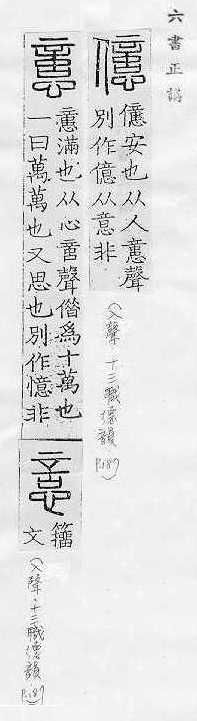 六書正譌
安也从人㥷聲
別作億从意非
(入聲 十三職德韻 P.187)
㥷滿也从心𠶷聲借爲十萬也
一曰萬萬也又思也別作憶非
籒
文
(入聲‧十三職德韻 P.187)